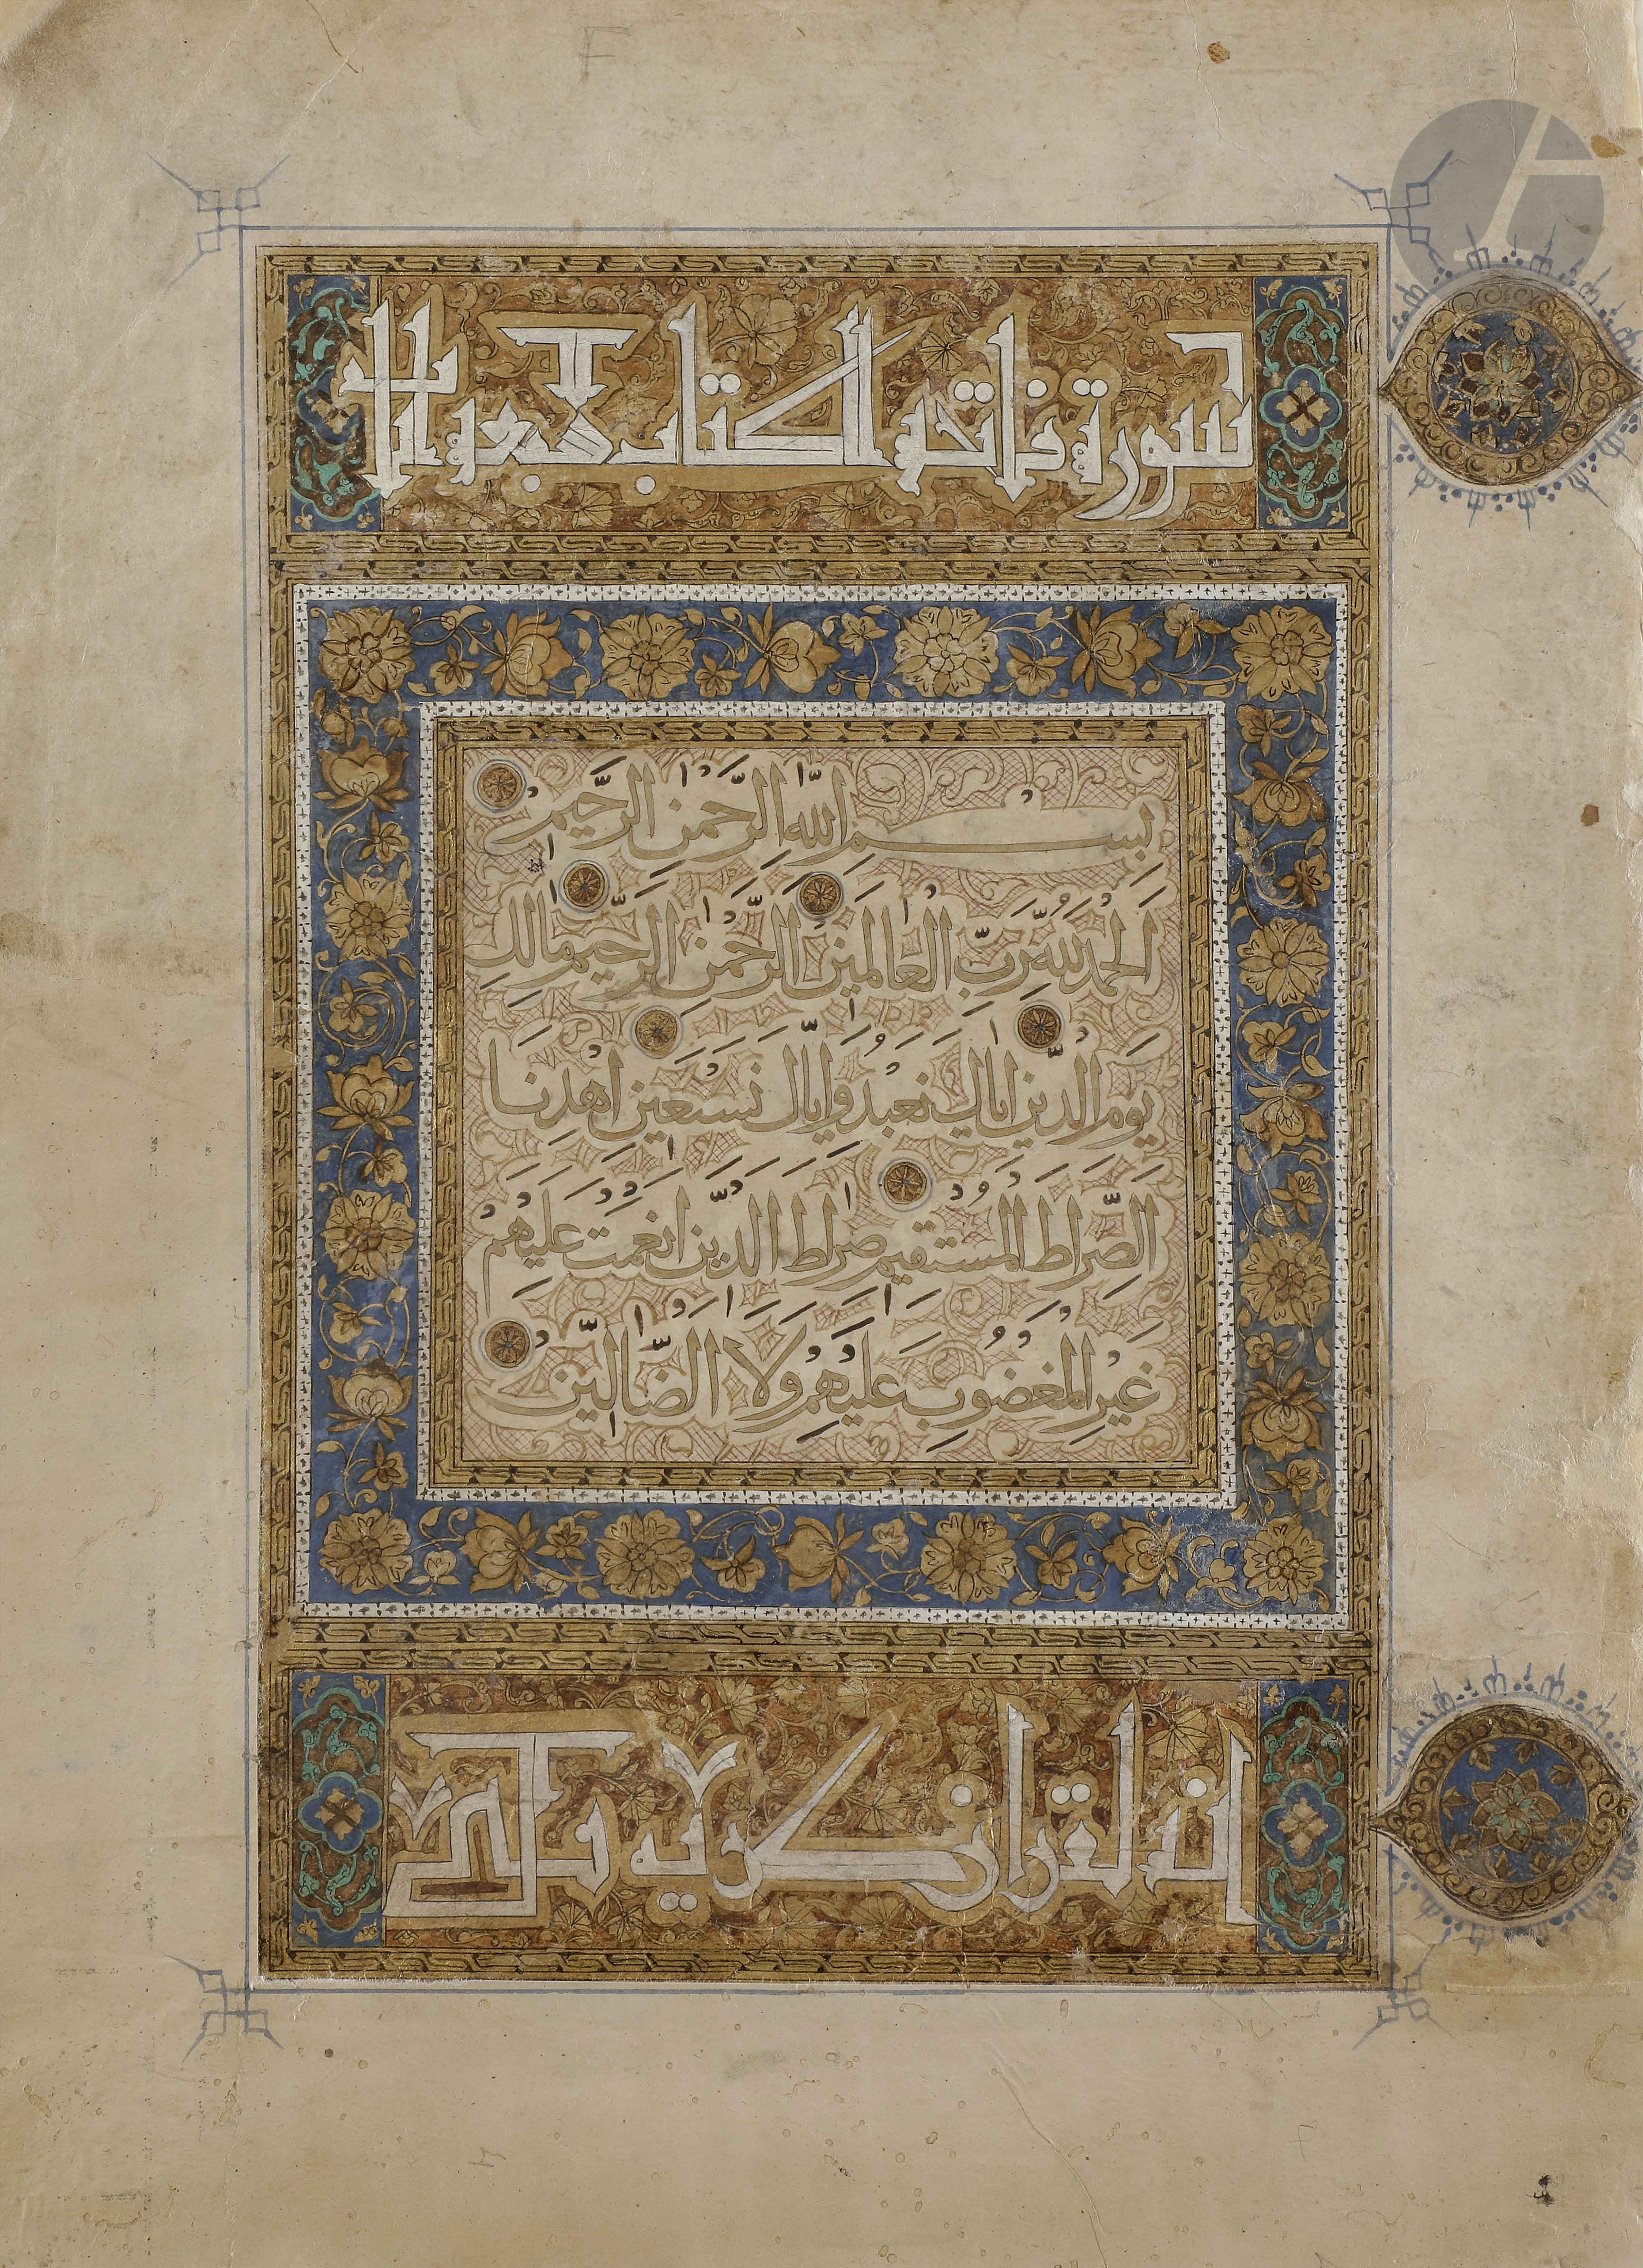 سورة فاتحة الكتاب
بِسْمِ اللَّهِ الرَّحْمَنِ الرَّحِيمِ
الْحَمْدُ لِلَّهِ رَبِّ الْعَالَمِينَ الرَّحْمَنِ الرَّحِيمِ مَالِكِ
يَوْمِ الدِّينِ اِيَّاكَ نَعْبُدُ وَاِيَّاكَ نَسْتَعِينُ اهْدِنَا
الصِّرَاطَ الْمُسْتَقِيمَ صِرَاطَ الَّذِينَ اَنْعَمْتَ عَلَيْهِمْ
غَيْرِ الْمَغْضُوبِ عَلَيْهِمْ وَلَا الضَّالِّينَ
انه لقران كريم